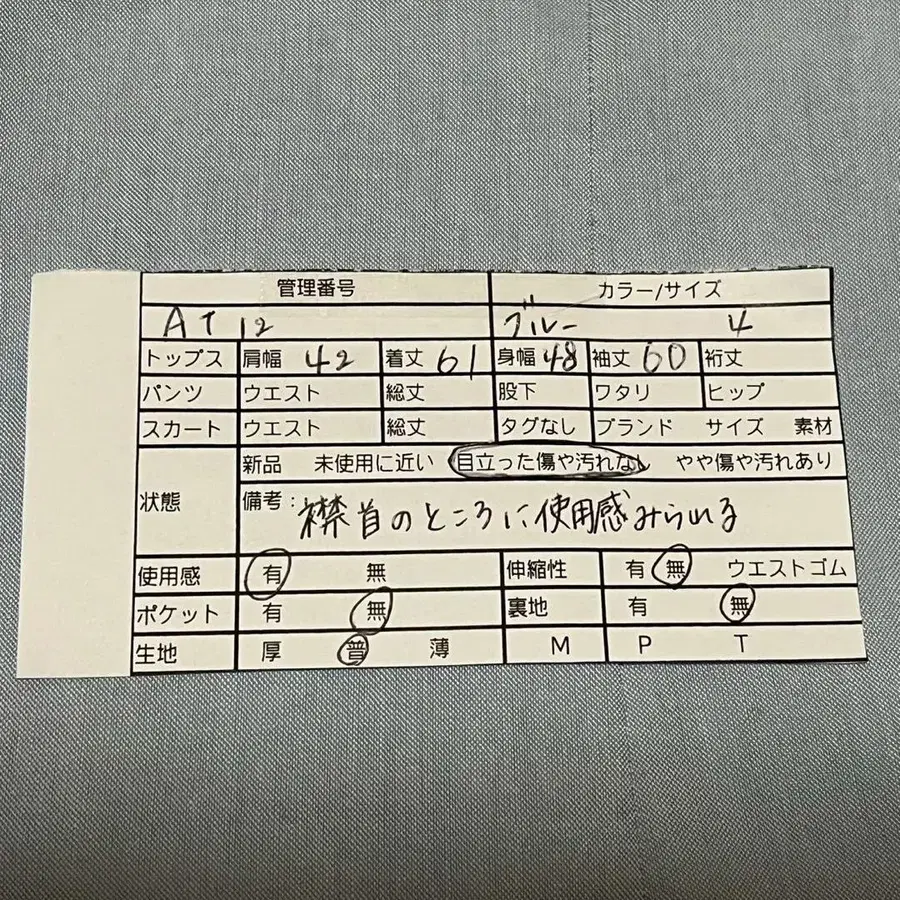 管理番号 カラー/サイズ
AT12 ブルー 4
トップス 肩幅 42 着丈 61 身幅 48 袖丈 60 裄丈
パンツ ウエスト 総丈 股下 ワタリ ヒップ
スカート ウエスト 総丈 タグなし ブランド サイズ 素材
新品 未使用に近い 目立った傷や汚れなし やや傷や汚れあり
状態 備考: 襟首のところに使用感みられる
使用感 有 無 伸縮性 有 無 ウエストゴム
ポケット 有 無 裏地 有 無
生地 厚 普 薄 M P T